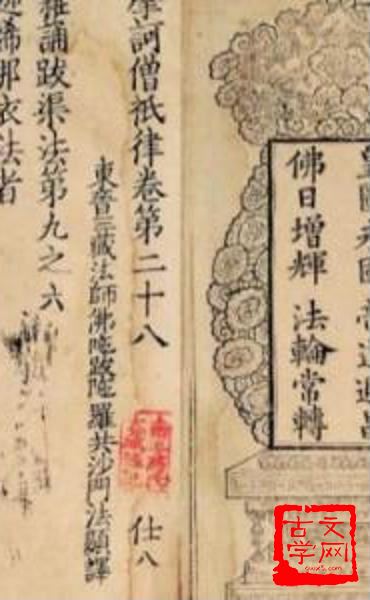 皇圖永固 帝道遐昌
佛日增輝 法輪常轉
摩訶僧祇律卷第二十八 仕八
東晉三藏法師佛陀跋陀羅共沙門法顯譯
雜誦跋渠法第九之六
迦絺那衣法者
古文
学网